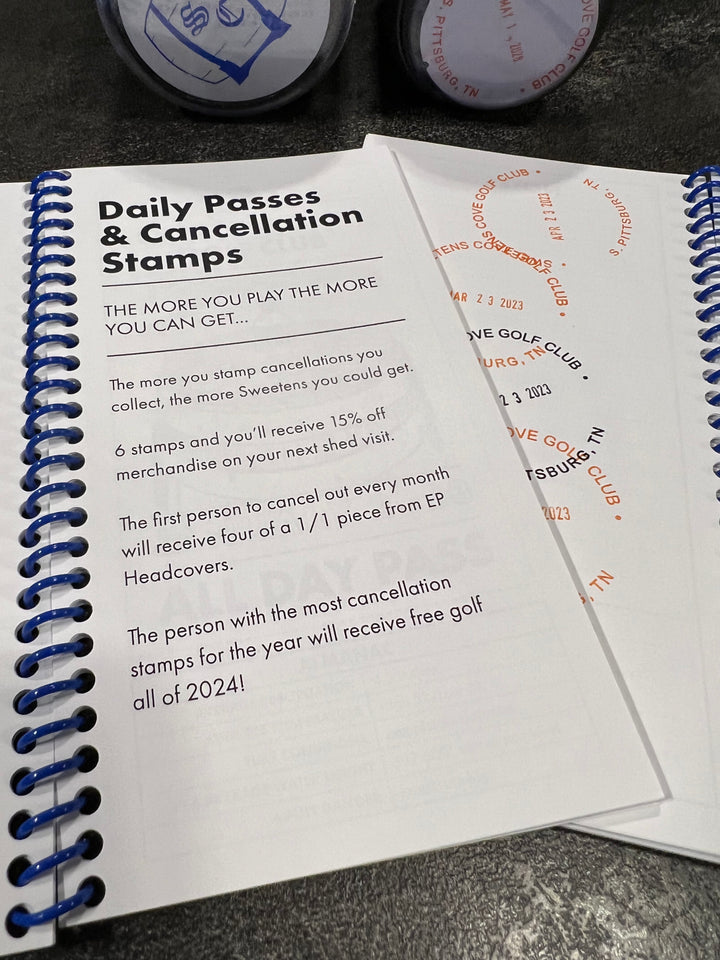 Daily Passes
& Cancellation
Stamps
THE MORE YOU PLAY THE MORE
YOU CAN GET...
The more you stamp cancellations you
collect, the more Sweetens you could get.
6 stamps and you'll receive 15% off
merchandise on your next shed visit.
The first person to cancel out every month
will receive four of a 1/1 piece from EP
Headcovers.
The person with the most cancellation
stamps for the year will receive free golf
all of 2024!
COVE GOLF CLUB •
APR 23 2023
S. PITTSBURG, TN
COVE GOLF CLUB •
MAR 23 2023
OVE GOLF CLUB •
URG, TN
23 2023
OVE GOLF CLUB •
TSBURG, TN
2023
TN
OVE GOLF CLUB •
MAY 1
S. PITTSBURG, TN